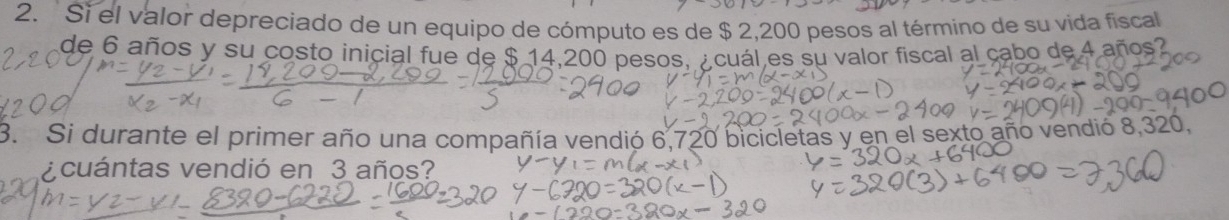 2. Si el valor depreciado de un equipo de cómputo es de $ 2,200 pesos al término de su vida fiscal
de 6 años y su costo inicial fue de $ 14,200 pesos, ¿cuál es su valor fiscal al cabo de 4 años?
m = y2 - y1 / x2 - x1 = 14,200 - 2,200 / 6 - 1 = 12000 / 5 = 2400
y - y1 = m(x - x1)
y - 2,200 = 2400(x - 1)
y - 2,200 = 2400x - 2400
y = 2400x - 2400 + 2200
y = 2400x - 200
y = 2400(4) - 200 = 9400
3. Si durante el primer año una compañía vendió 6,720 bicicletas y en el sexto año vendió 8,320,
¿cuántas vendió en 3 años?
m = y2 - y1 = 8320 - 6720 = 1600 / 5 = 320
y - y1 = m(x - x1)
y - 6720 = 320(x - 1)
y - 6720 = 320x - 320
y = 320x + 6400
y = 320(3) + 6400 = 7,360